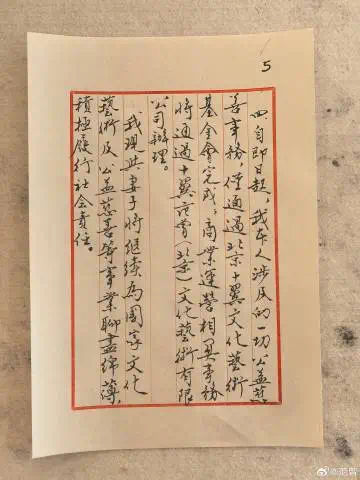 5
四自即日起，我本人涉及的一切公益慈
善事務，僅通過北京十翼文化藝術
基金會完成；商業運營相關事務
將通過十翼范曾（北京）文化藝術有限
公司辦理。
我現妻子將繼續為國家文化
藝術及公益慈善等事業聊盡綿薄，
積極履行社會責任。
@范曾